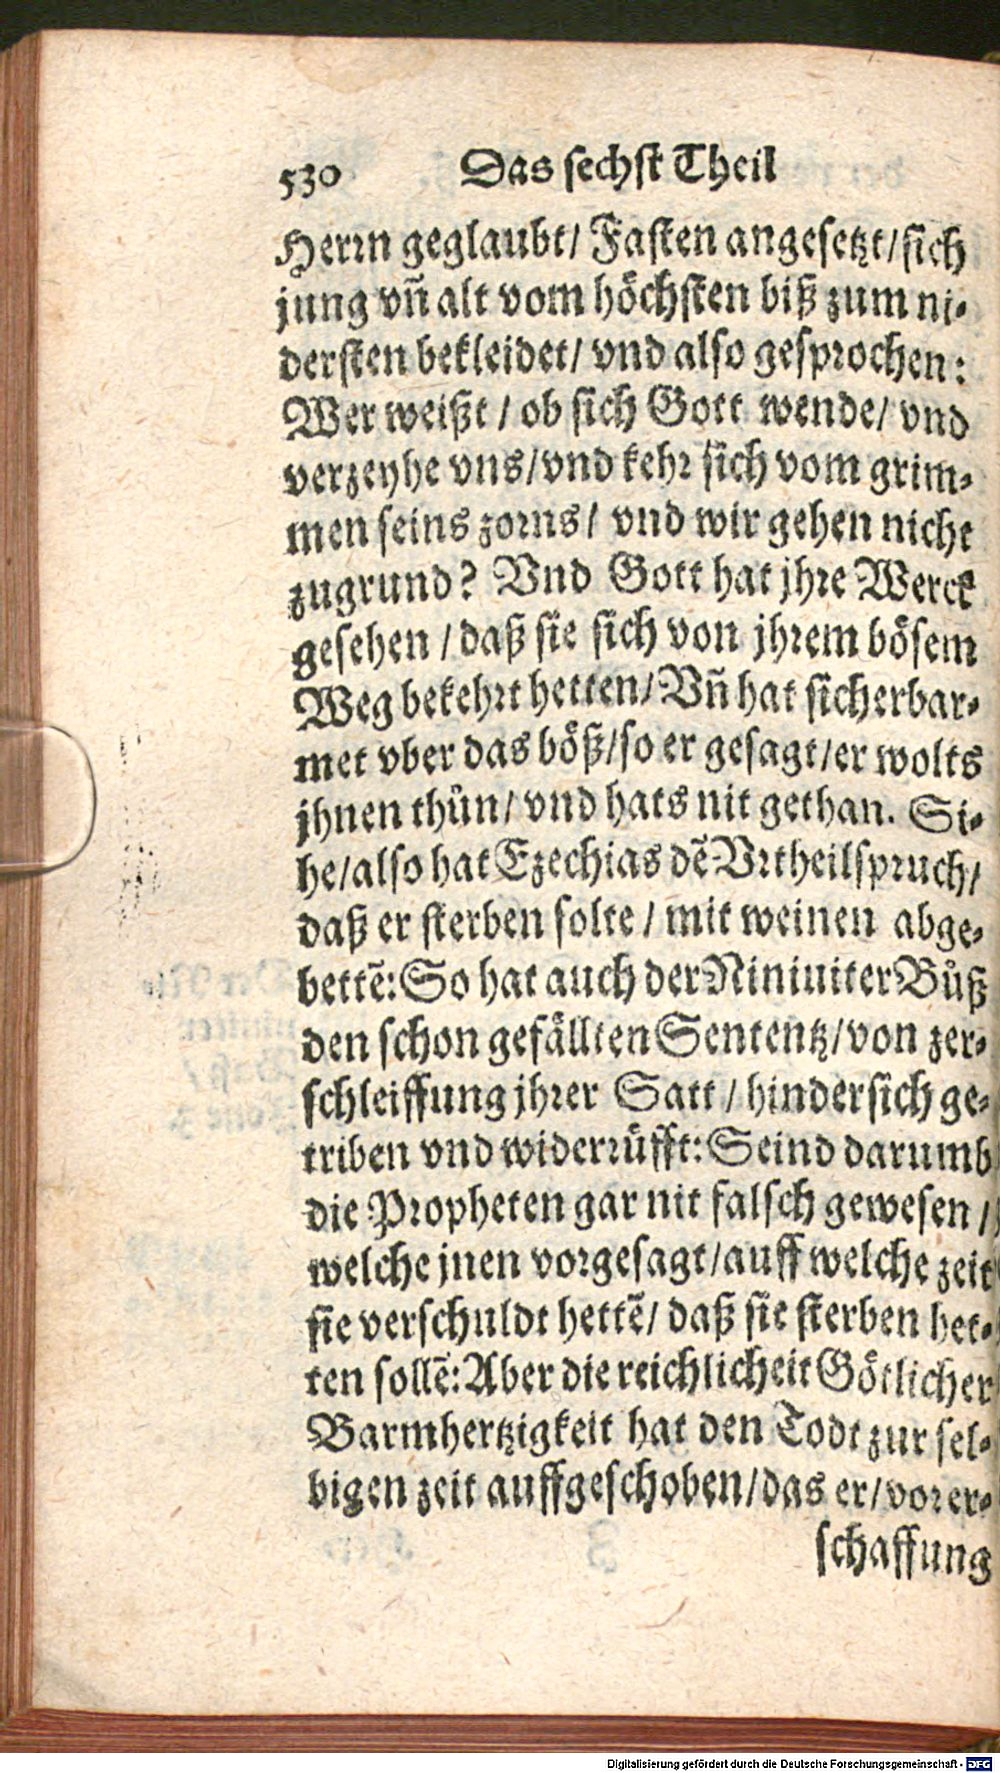 530 Das sechst Theil
Herrn geglaubt/ Fasten angesetzt/sich
jung vn̄ alt vom höchsten biß zum ni-
dersten bekleidet/ vnd also gesprochen:
Wer weißt / ob sich Gott wende/ vnd
verzeyhe vns/vnd kehr sich vom grim-
men seins zorns/ vnd wir gehen nicht
zugrund? Vnd Gott hat jhre Werck
gesehen / daß sie sich von jhrem bösem
Weg bekehrt hetten/ Vn̄ hat sich erbar-
met vber das böß/so er gesagt/er wolts
jhnen thůn/ vnd hats nit gethan. Si-
he/also hat Ezechias dē Vrtheilspruch/
daß er sterben solte / mit weinen abge-
bettē: So hat auch der Niniuiter Bůß
den schon gefällten Sententz/von zer-
schleiffung jhrer Satt / hindersich ge-
triben vnd widerrüfft: Seind darumb
die Propheten gar nit falsch gewesen /
welche jnen vorgesagt/auff welche zeit
sie verschuldt hettē/ daß sie sterben het-
ten sollē: Aber die reichlicheit Götlicher
Barmhertzigkeit hat den Todt zur sel-
bigen zeit auffgeschoben/das er/vor er-
schaffung
Digitalisierung gefördert durch die Deutsche Forschungsgemeinschaft - DFG